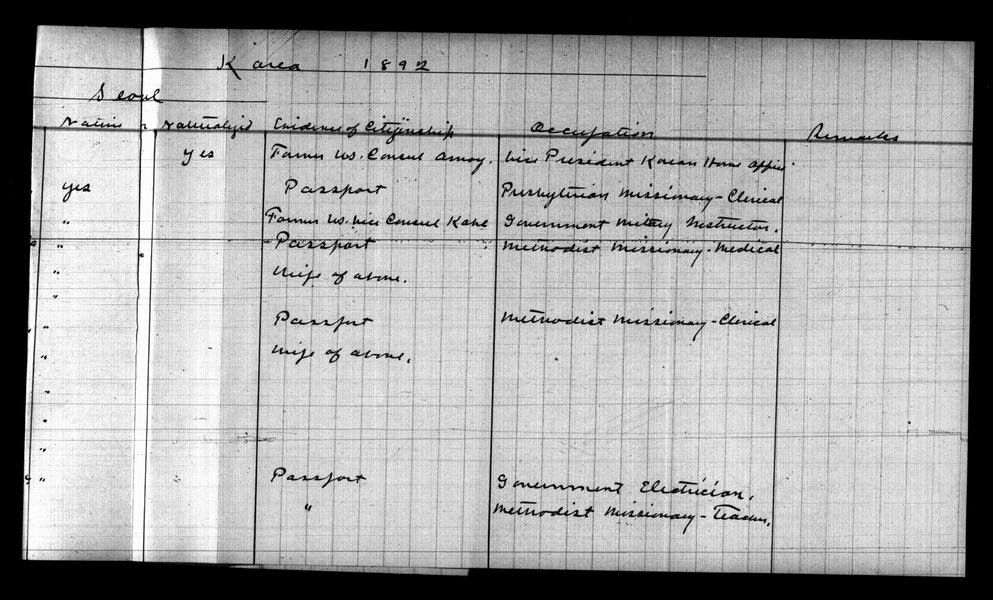 Korea 1892
Seoul
Native or Naturalized Evidence of Citizenship Occupation Remarks
yes Former U.S. Consul Amoy. Vice President Korean Home Office.
yes Passport Presbyterian Missionary - Clerical
" Former U.S. Vice Consul Kobe Government Military Instructor.
" Passport Methodist Missionary - Medical
" Wife of above.
"
" Passport Methodist Missionary - Clerical
" Wife of above.
"
"
"
" Passport Government Electrician.
" Methodist Missionary - Teacher.